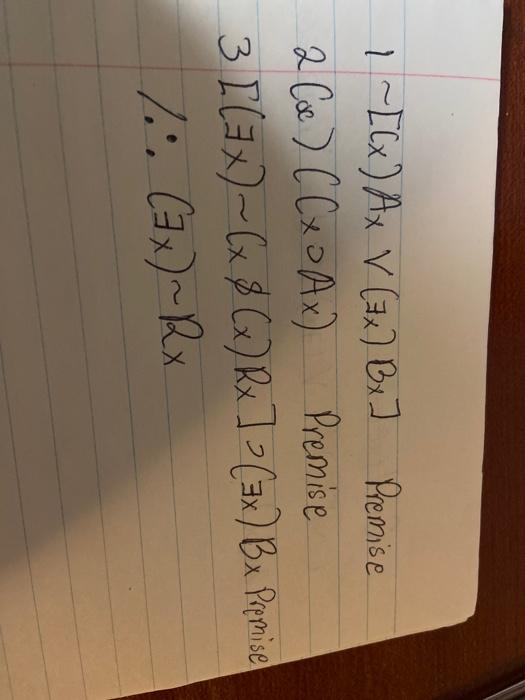 1 ~[(x) Ax ∨ (∃x) Bx] Premise
2 (x) (Cx ⊃ Ax) Premise
3 [(∃x) ~ Cx & (x) Rx] ⊃ (∃x) Bx Premise
/∴ (∃x) ~ Rx